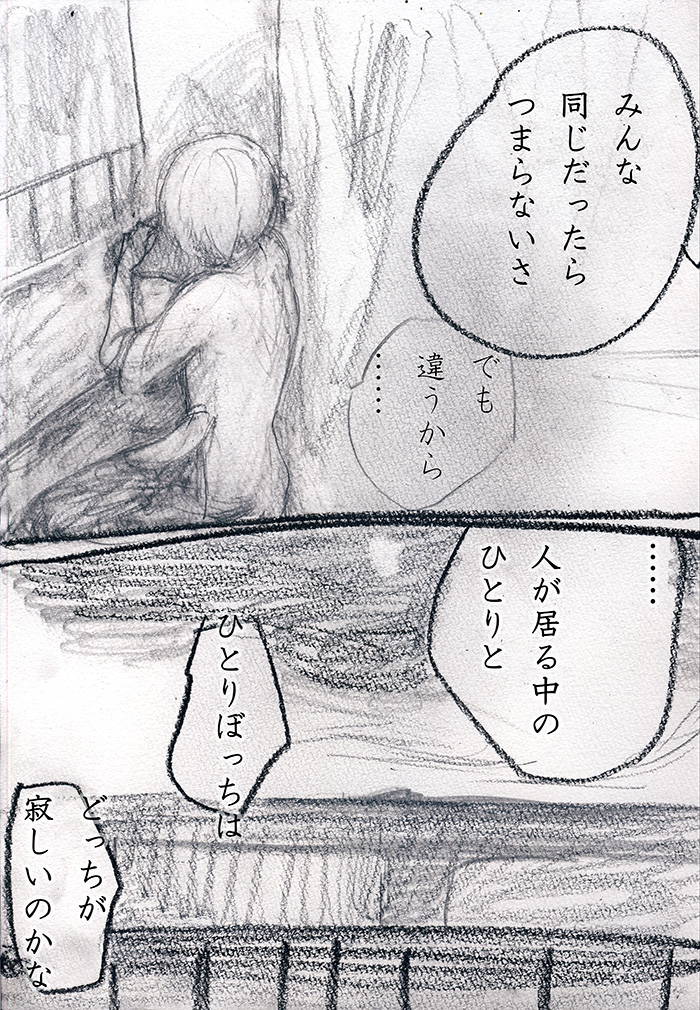 みんな
同じだったら
つまらないさ
でも
違うから
……
……
人が居る中の
ひとりと
ひとりぼっちは
どっちが
寂しいのかな